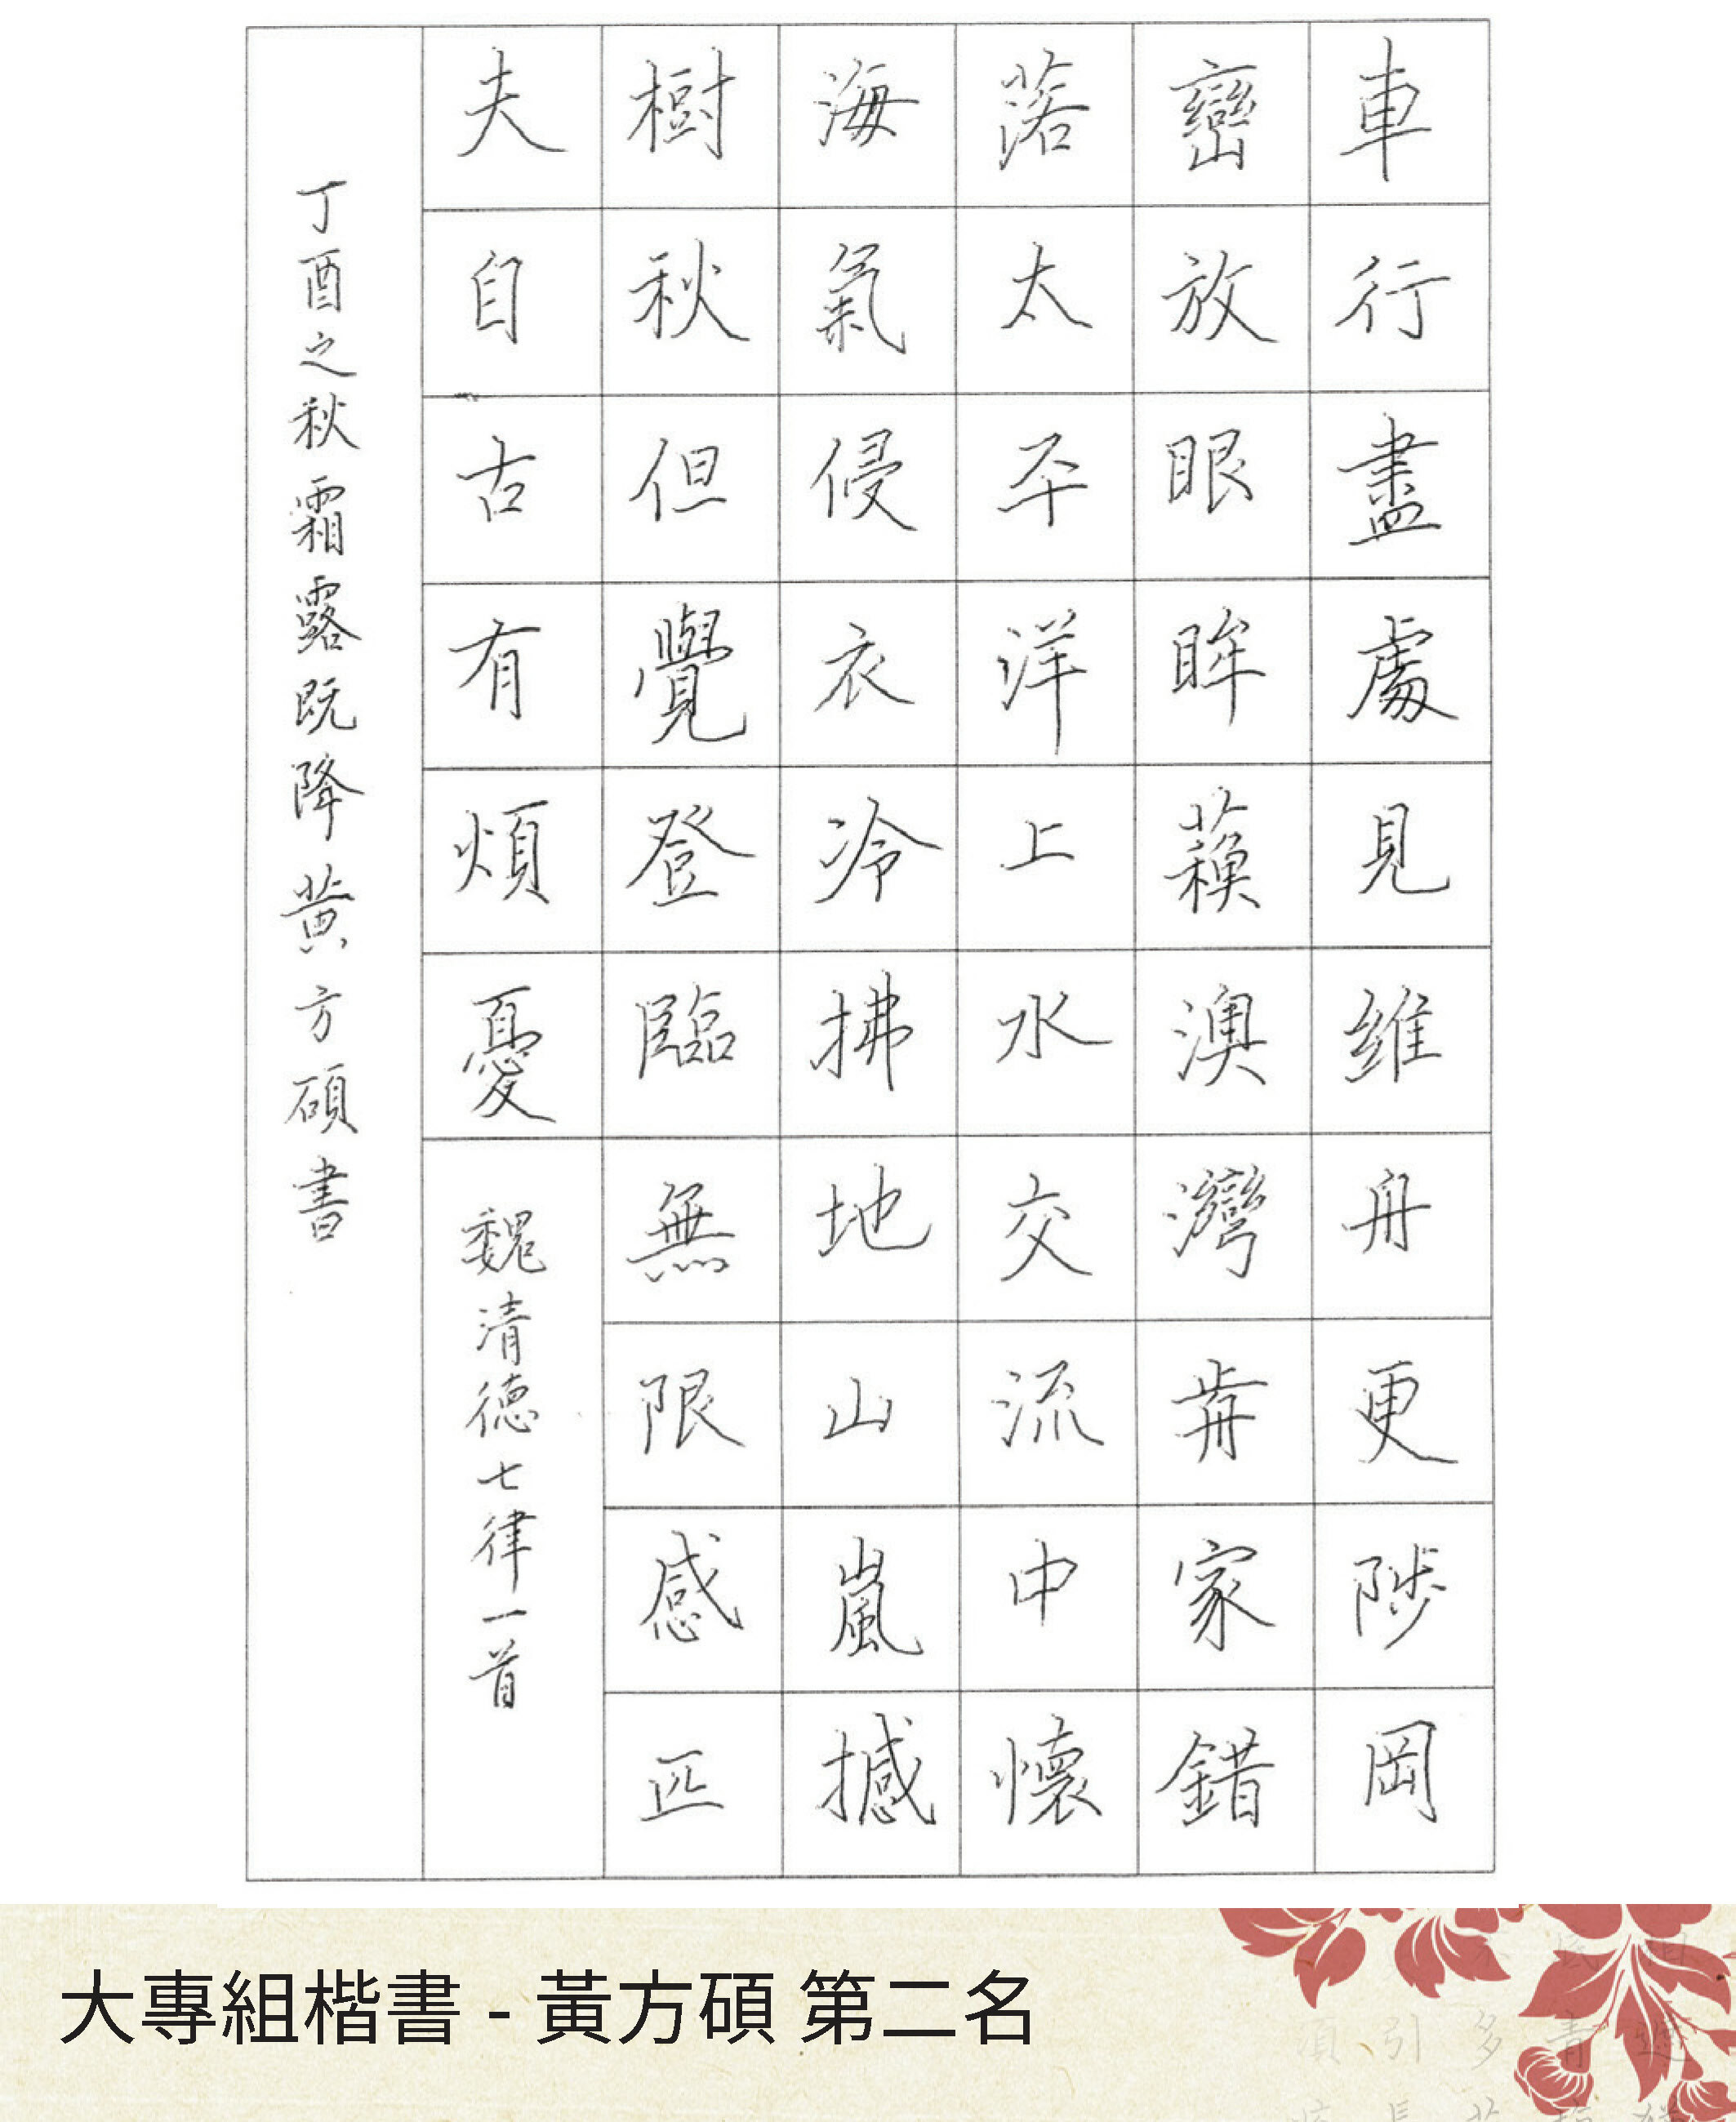 車行盡處見維舟更陟岡
巒放眼眸蘇澳灣前家錯
落太平洋上水交流中懷
海氣侵衣冷拂地山嵐撼
樹秋但覺登臨無限感匹
夫自古有煩憂 魏清德七律一首
丁酉之秋霜露既降黃方碩書
大專組楷書 - 黃方碩 第二名